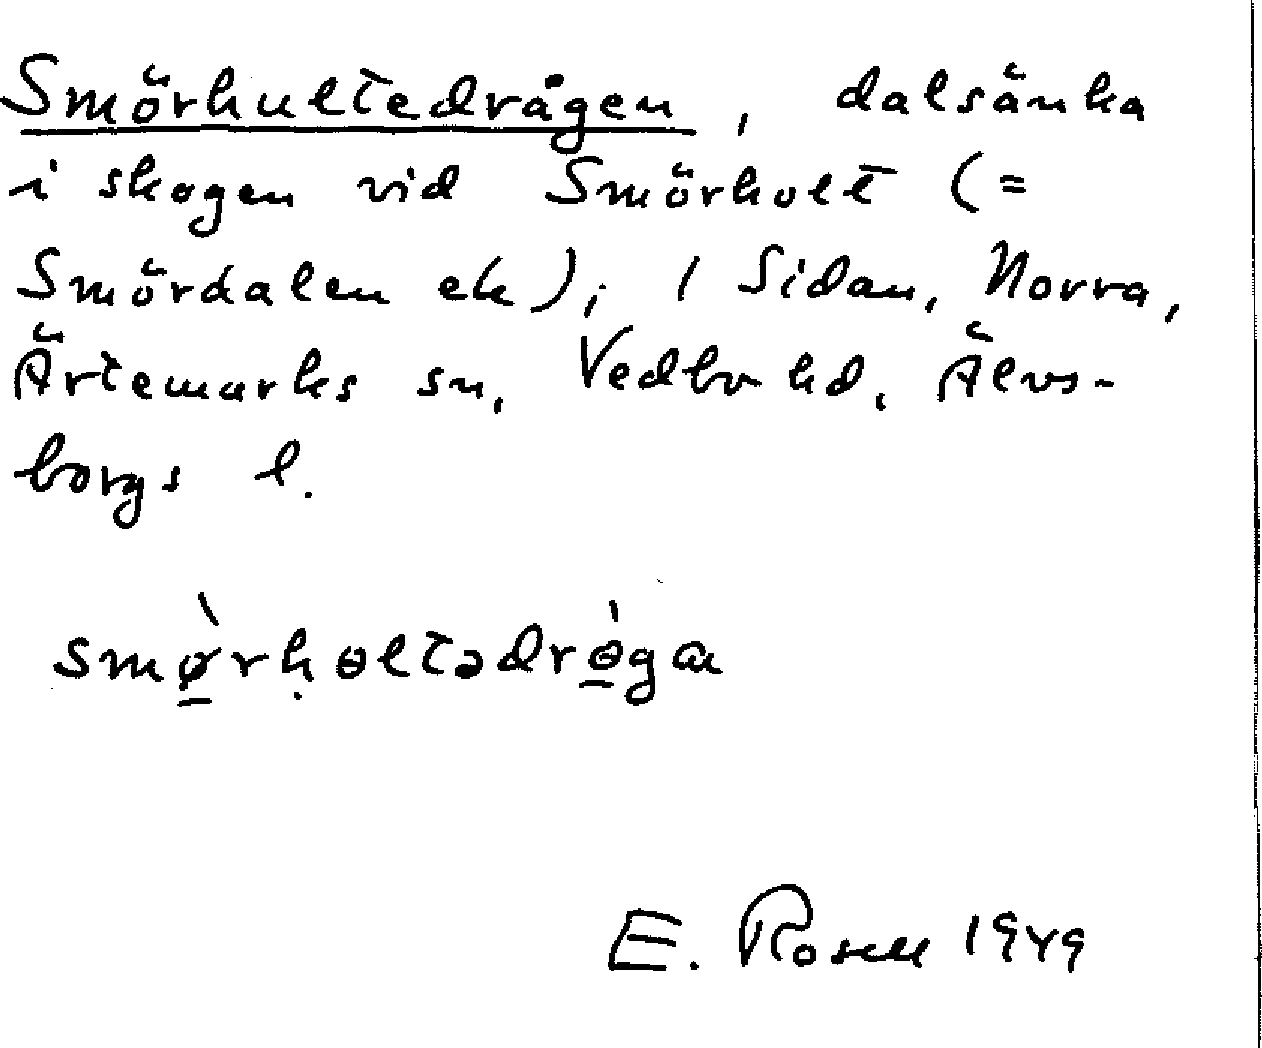 Smörhultedrågen, dalsänka
i skogen vid Smörholt (=
Smördalen ek); / Sidan, Norra,
Ärtemarks sn, Vedbo hd, Älvs-
borgs l.
smø̱̀rḥɵltədrɵ̱́gan
E. Rosell 1949